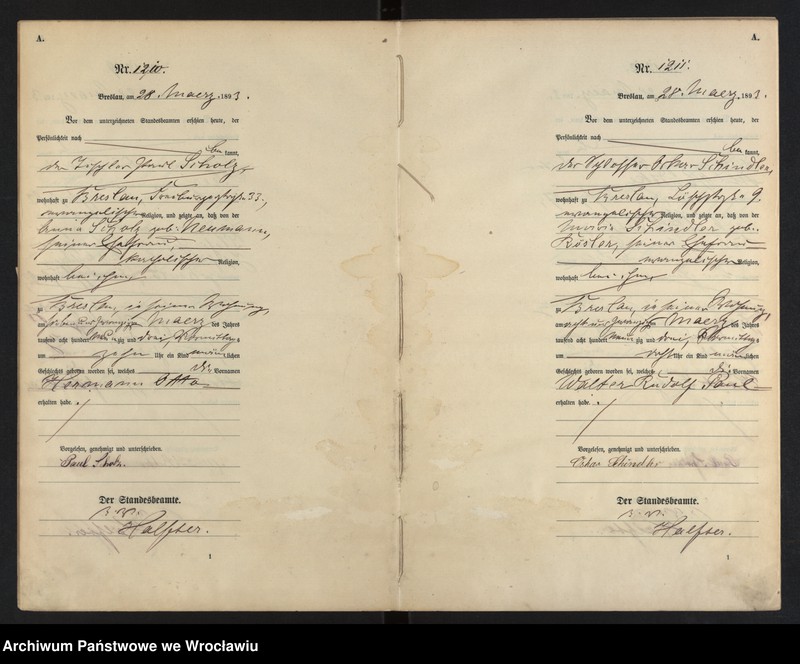 A.
Nr. 1210.
Breslau, am 28. Maerz 1893.
Vor dem unterzeichneten Standesbeamten erschien heute, der
Persönlichkeit nach
be kannt,
der Tischler Paul Scholz,
wohnhaft zu Breslau, Freiburgerstraße 33.,
evangelischer Religion, und zeigte an, daß von der
Anna Scholz geb. Neumann,
seiner Ehefrau,
katholischer Religion,
wohnhaft bei ihm,
zu Breslau, in seiner Wohnung,
am sieben und zwanzigsten Maerz des Jahres
tausend acht hundert neun zig und drei, Vormittags
um zehn Uhr ein Kind männlichen
Geschlechts geboren worden sei, welches die Vornamen
Hermann Otto
erhalten habe.
Vorgelesen, genehmigt und unterschrieben.
Paul Scholz.
Der Standesbeamte.
Halfter.
1
A.
Nr. 1211.
Breslau, am 28. Maerz 1893.
Vor dem unterzeichneten Standesbeamten erschien heute, der
Persönlichkeit nach
be kannt,
der Schlosser Oskar Schindler,
wohnhaft zu Breslau, 9,
evangelischer Religion, und zeigte an, daß von der
Maria Schindler geb.
Rösler, seiner Ehefrau
evangelischer Religion,
wohnhaft bei ihm,
zu Breslau, in seiner Wohnung,
am acht und zwanzigsten Maerz des Jahres
tausend acht hundert neun zig und drei, Vormittags
um Uhr ein Kind männlichen
Geschlechts geboren worden sei, welches die Vornamen
Walter Rudolf Paul
erhalten habe.
Vorgelesen, genehmigt und unterschrieben.
Oskar Schindler
Der Standesbeamte.
Halfter.
1
Archiwum Państwowe we Wrocławiu